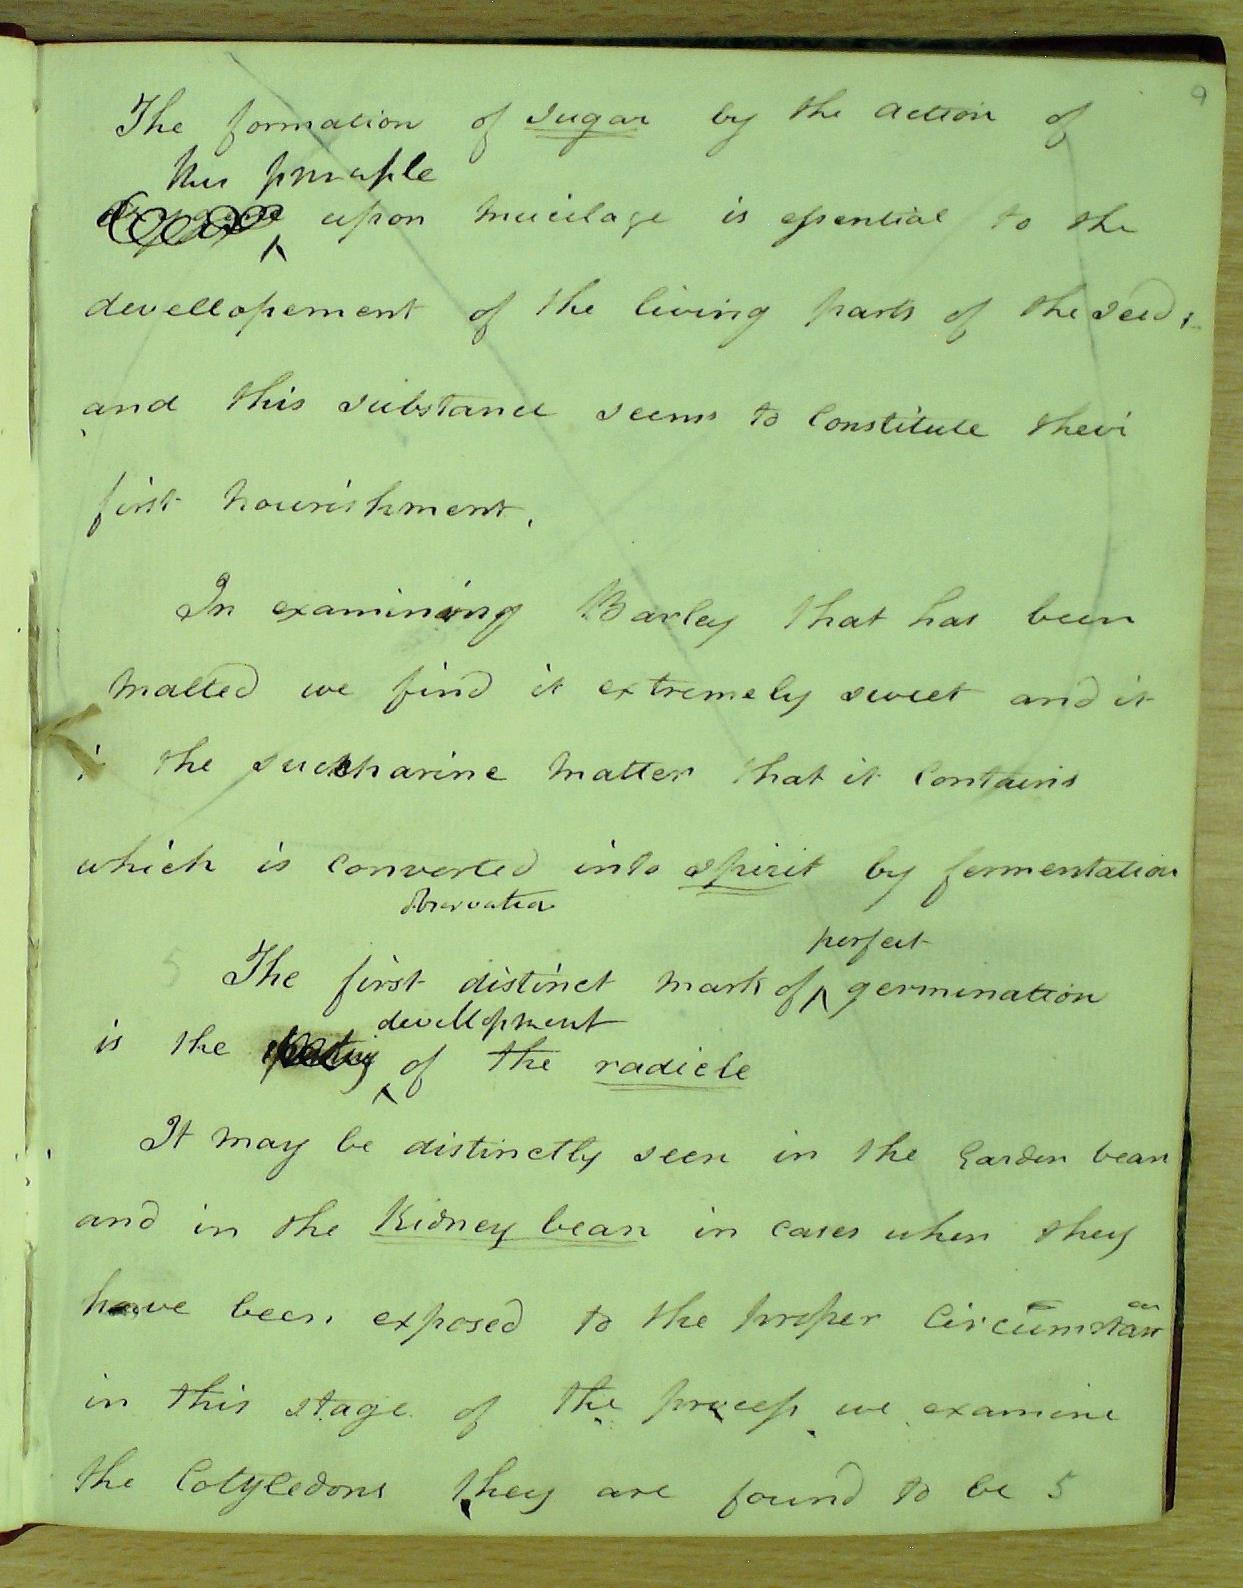 9
The formation of sugar by the action of
this principle
upon mucilage is essential to the
devellopement of the living parts of the seed;
and this substance seems to constitute their
first nourishment.
In examining Barley that has been
malted we find it extremely sweet and it
is the succharine matter that it contains
which is converted into spirit by fermentation
observation
perfect
5 The first distinct mark of germination
devellopment
is the of the radicle
It may be distinctly seen in the Garden bean
and in the Kidney bean in cases when they
have been exposed to the proper circumstan
ces
in this stage of the process we examine
the Cotyledons they are found to be 5